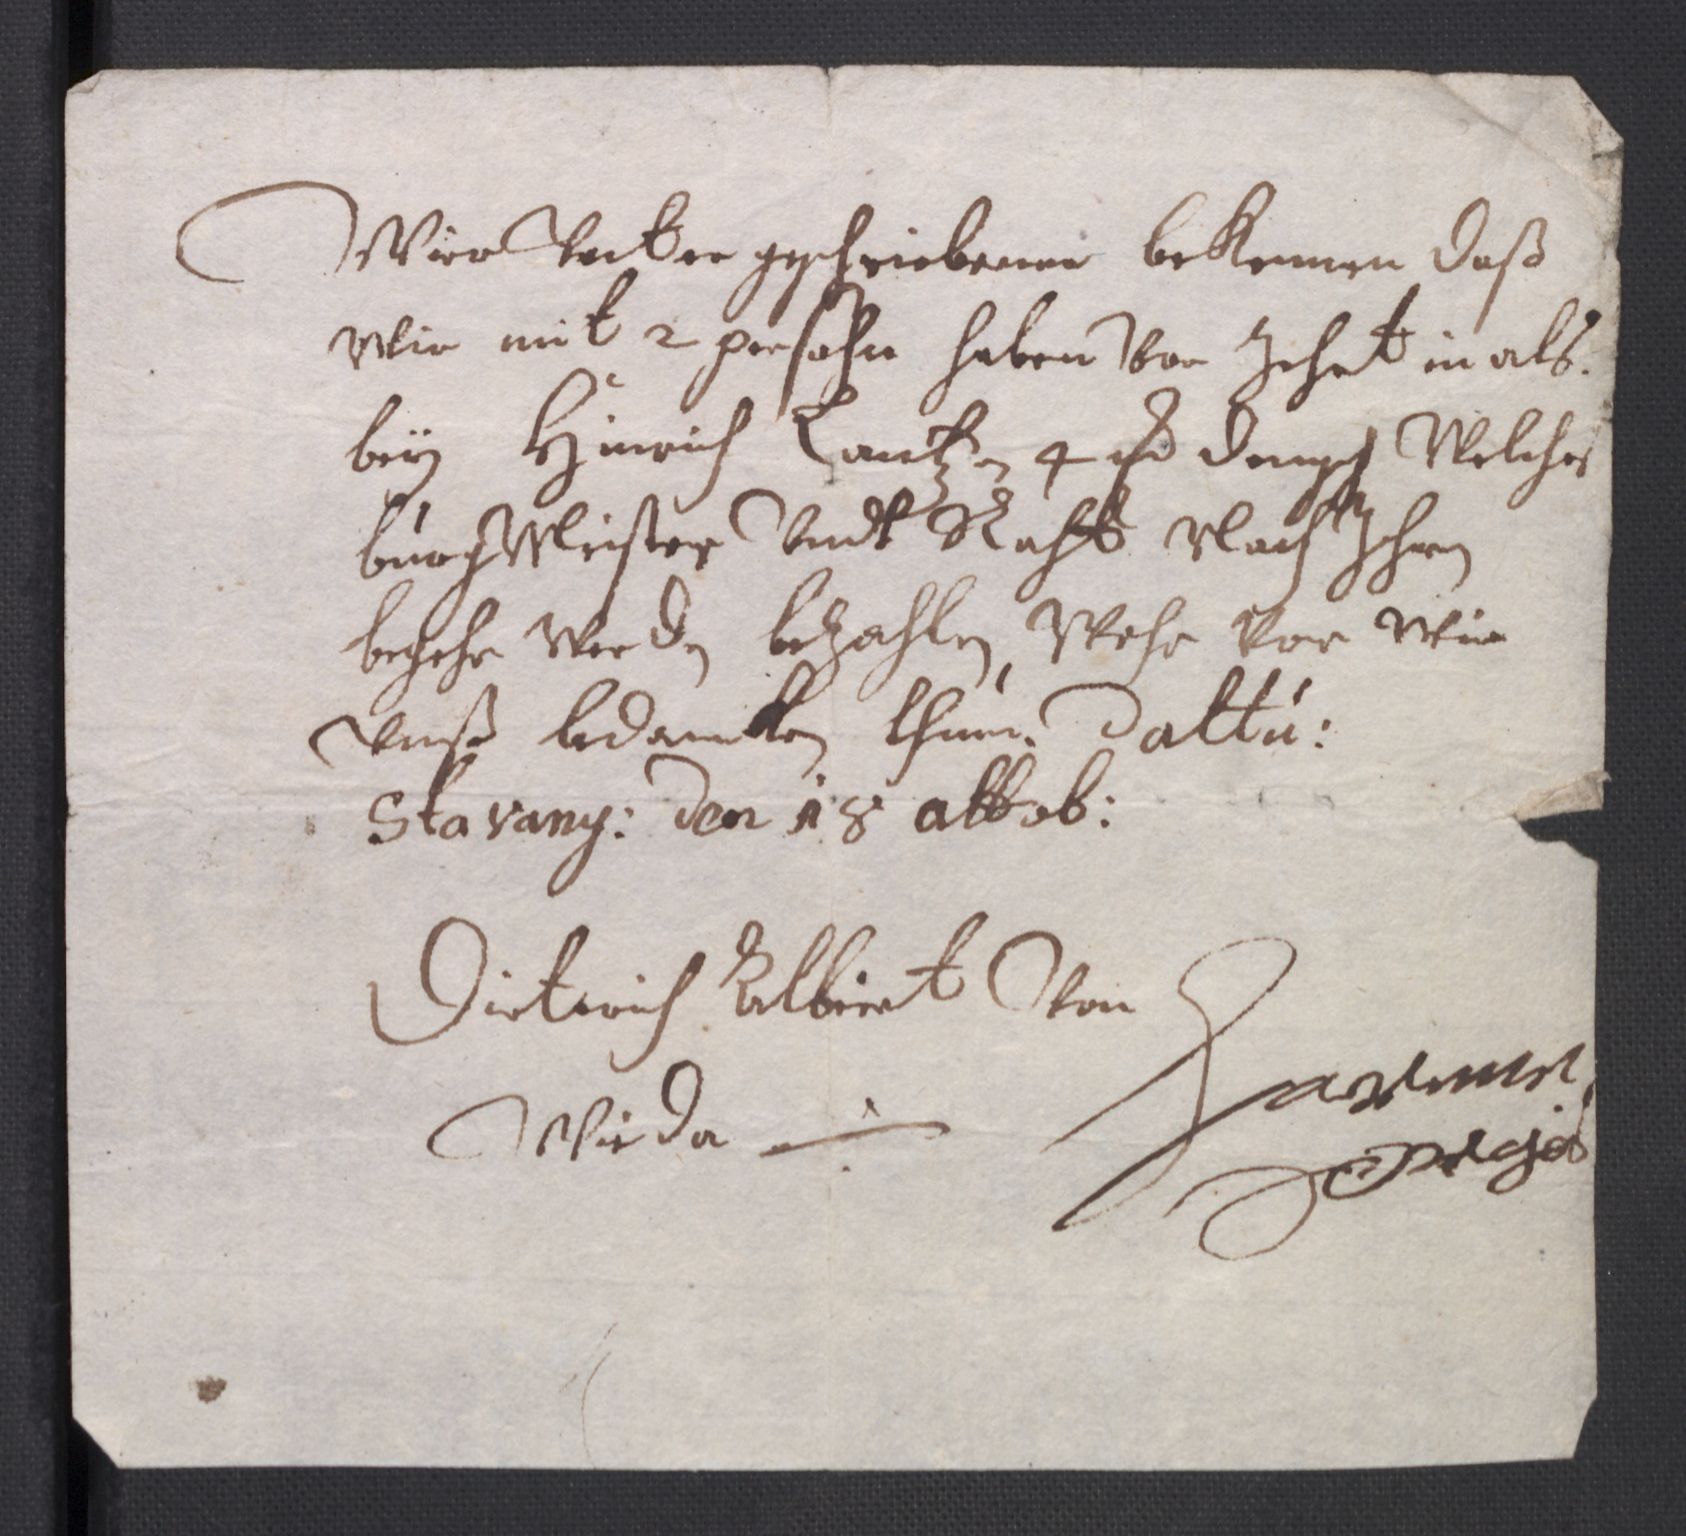 Wier Vnter geschriebenen bekennen daß
Wir mit 2 persohn haben Vor Zehrt in als
beÿ Hinrich Lantzen 4 Densch Welches
burg Meister Vndt Raht Nach Ihren
begehr Werden bezahlen, Wehr Vor Wir
Vnß bedancken thun. Dattu:
Stavang: den 18 attob:
Dieterich Albiert Von
Wieda